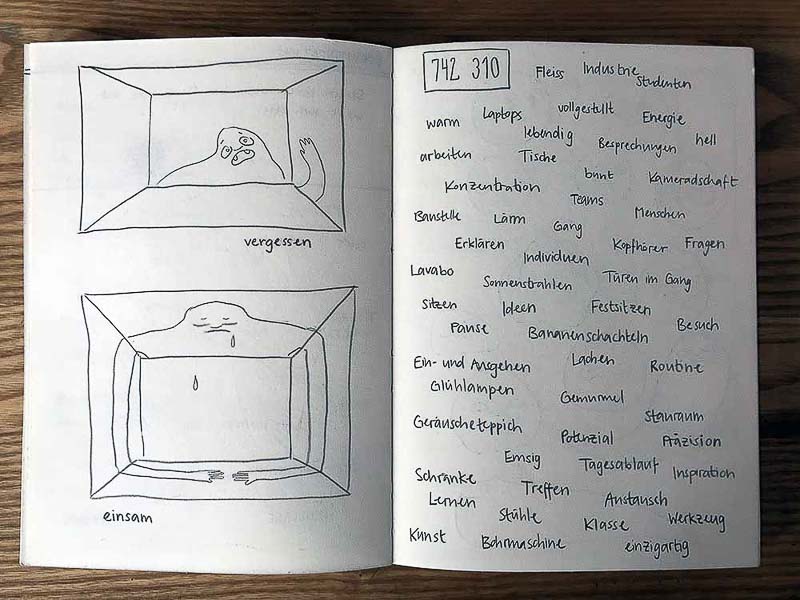 vergessen
einsam
742 310
Fleiss Industrie Studenten
warm Laptops vollgestellt Energie
lebendig Besprechungen hell
arbeiten Tische
Konzentration bunt Kameradschaft
Teams
Baustelle Lärm Gang Menschen
Erklären Individuen Kopfhörer Fragen
Lavabo Sonnenstrahlen Türen im Gang
sitzen Ideen Festsitzen
Pause Bananenschachteln Besuch
Ein- und Ausgehen Lachen Routine
Glühlampen Gemurmel
Geräuscheteppich Stauraum
Potenzial Präzision
Emsig Tagesablauf Inspiration
Schränke Treffen
Lernen Austausch
Stühle Klasse Werkzeug
Kunst Bohrmaschine einzigartig